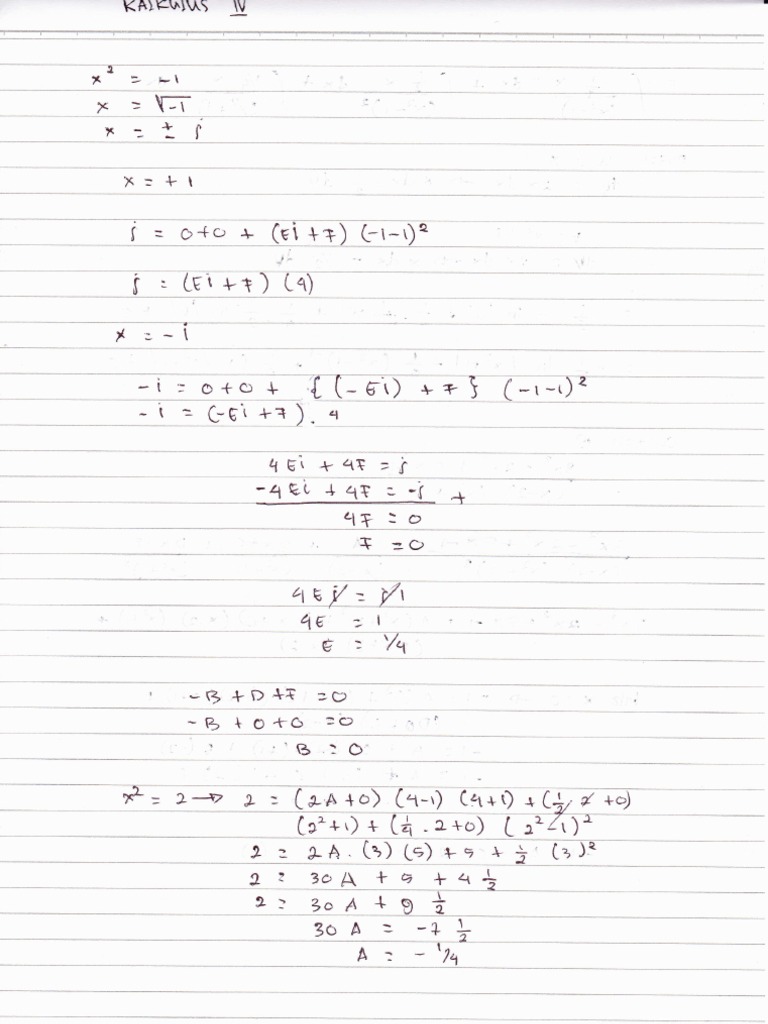 KALKULUS IV
x² = -1
x = √-1
x = ± i
x = + 1
i = 0+0 + (Ei + F) (-1-1)²
i = (Ei + F) (4)
x = - i
-i = 0+0+ {(-Ei) + F} (-1-1)²
-i = (-Ei + F). 4
4Ei + 4F = i
-4Ei + 4F = -i +
4F = 0
F = 0
4Ei = i 1
4E = 1
E = 1/4
-B + D + F = 0
-B + 0 + 0 = 0
B = 0
x² = 2 → 2 = (2A+0) (4-1) (4+1) + (1/2. 2 +0)
(2²+1) + (1/4 . 2+0) (2²-1)²
2 = 2A. (3) (5) + 5 + 1/2 (3)²
2 = 30A + 5 + 4 1/2
2 = 30A + 9 1/2
30A = -7 1/2
A = - 1/4